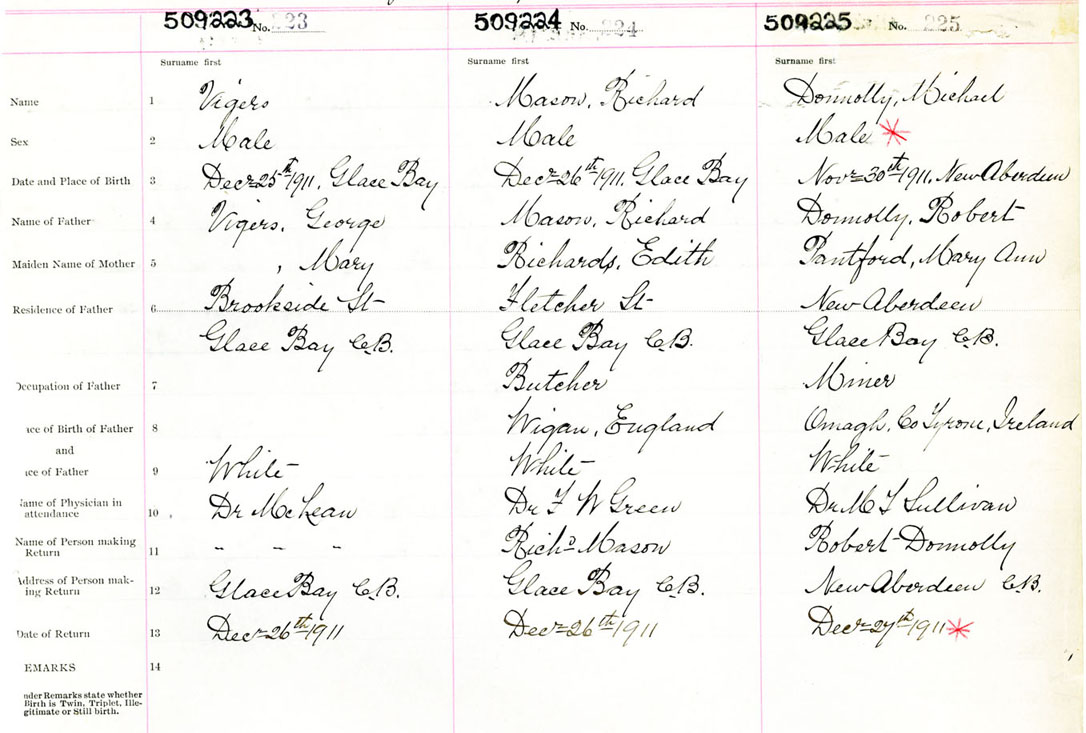 509223 No. 223 509224 No. 224 509225 No. 225
Surname first Surname first Surname first
Name 1 Vigers Mason, Richard Donnolly, Michael
Sex 2 Male Male Male
Date and Place of Birth 3 Decr 25th 1911. Glace Bay Decr 26th 1911. Glace Bay Novr 30th 1911. New Aberdeen
Name of Father 4 Vigers, George Mason, Richard Donnolly, Robert
Maiden Name of Mother 5 , Mary Richards, Edith Pantford, Mary Ann
Residence of Father 6 Brookside St Fletcher St New Aberdeen
Glace Bay C.B. Glace Bay C.B. Glace Bay C.B.
Occupation of Father 7 Butcher Miner
ace of Birth of Father 8 Wigan, England Omagh, Co Tyrone, Ireland
and
ace of Father 9 White White White
Name of Physician in
attendance 10 Dr McLean Dr F W Green Dr M T Sullivan
Name of Person making
Return 11 " " " Richd Mason Robert Donnolly
Address of Person mak-
ing Return 12 Glace Bay C.B. Glace Bay C.B. New Aberdeen C.B.
Date of Return 13 Decr 26th 1911 Decr 26th 1911 Decr 27th 1911
EMARKS 14
nder Remarks state whether
Birth is Twin, Triplet, Ille-
gitimate or Still birth.